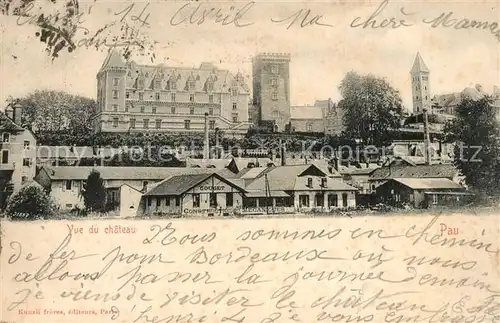 14 Avril, Ma chère Maman
GOUGET
CONSTR
Vue du château
Pau
Nous sommes en chemin
de fer pour Bordeaux où nous
allons passer la journée demain
je viens de visiter le château
Kunzli frères, éditeurs, Paris
henri